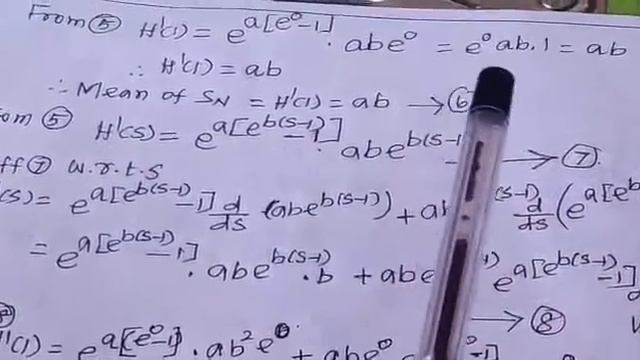 From ⑤ H'(1) = e^{a[e^0-1]} . abe^0 = e^0 ab.1 = ab
∴ H'(1) = ab
∴ Mean of S_N = H'(1) = ab → ⑥
om ⑤ H'(s) = e^{a[e^{b(s-1)}-1]} . abe^{b(s-1)} → ⑦
ff ⑦ w.r.t.s
(s) = e^{a[e^{b(s-1)}-1]} d/ds (abe^{b(s-1)}) + ab (s-1) d/ds (e^{a[e^b
= e^{a[e^{b(s-1)}-1]} . abe^{b(s-1)} . b + abe e^{a[e^{b(s-1)}-1]}
→ ⑧
"(1) = e^{a[e^0-1]} . ab^2e^0 + abe^0